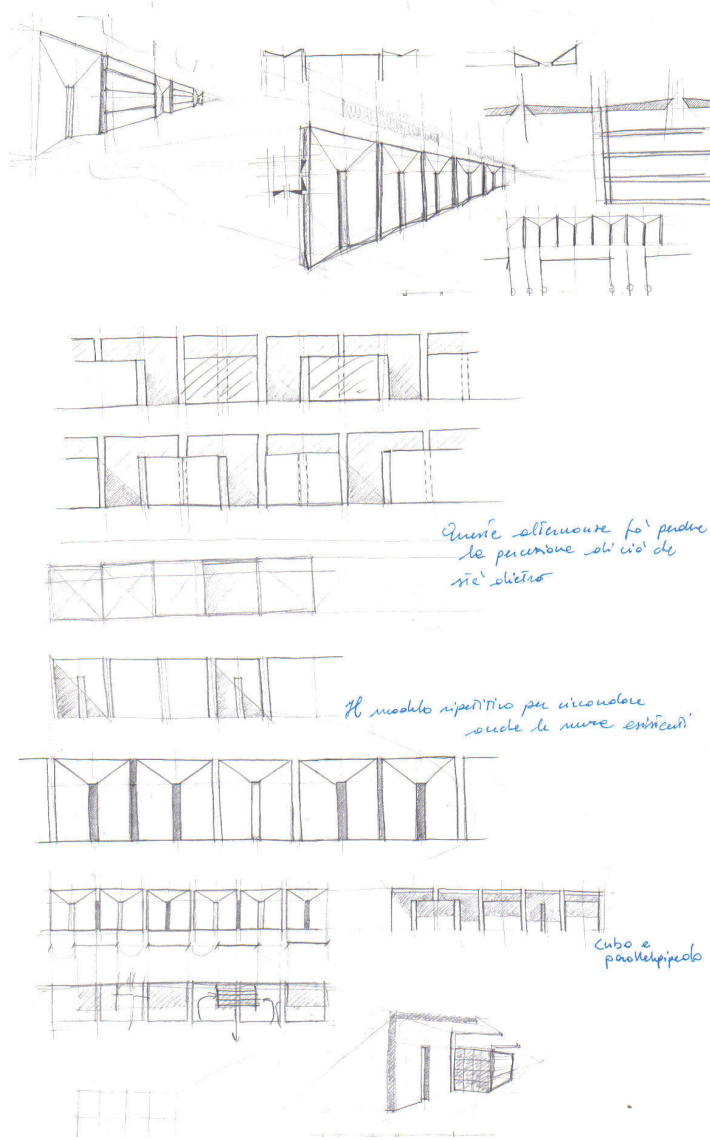 Queste alternanze fà perdere
la percezione di ciò che
sta' dietro
Il modello ripetitivo per circondare
anche le mura esistenti
Cubo e
parallelepipedo